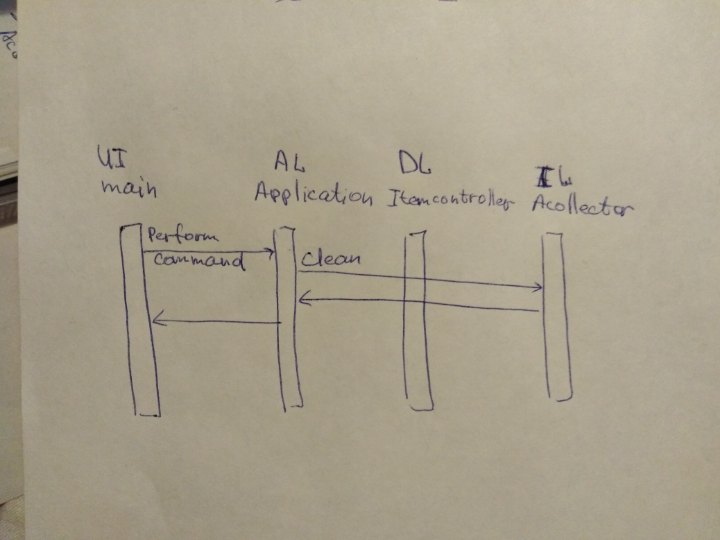 UI
main
AL
Application
DL
Itemcontroller
IL
Acollector
Perform
Command
Clean